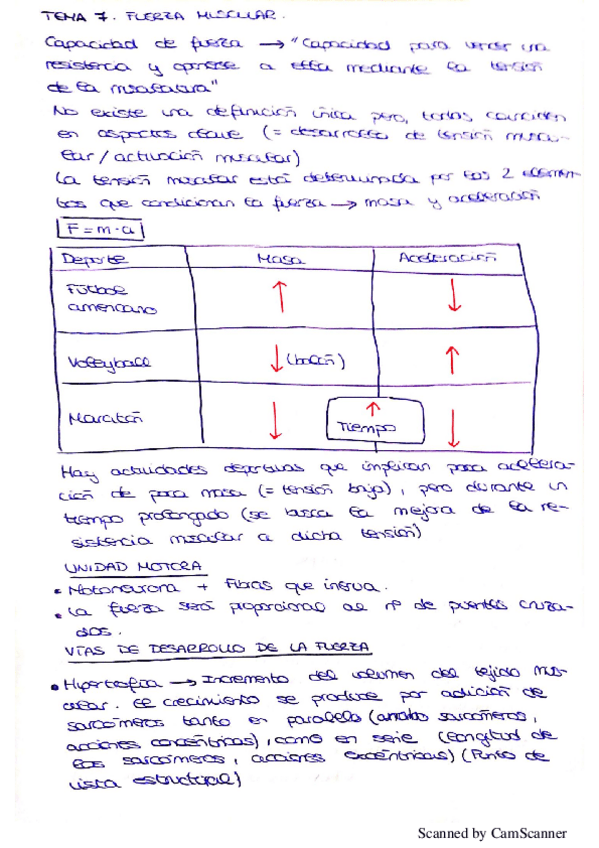 TEMA 7. FUERZA MUSCULAR.
Capacidad de fuerza → "Capacidad para vencer una
resistencia y oponerse a ella mediante la tensión
de la musculatura"
No existe una definición única pero, todas coinciden
en aspectos clave (= desarrollo de tensión muscu-
lar / actuación muscular)
La tensión muscular está determinada por los 2 elemen-
tos que condicionan la fuerza → masa y aceleración
F = m · a
Deporte Masa Aceleración
Fútbol
americano ↑ ↓
Volleyball ↓ (balón) ↑
Maratón ↓ ↑ Tiempo ↓
Hay actividades deportivas que implican poca acelera-
ción de poca masa (= tensión baja), pero durante un
tiempo prolongado (se busca la mejora de la re-
sistencia muscular a dicha tensión)
UNIDAD MOTORA
• Motoneurona + Fibras que inerva.
• La fuerza será proporcional al nº de puentes cruza-
dos.
VÍAS DE DESARROLLO DE LA FUERZA
• Hipertrofia → Incremento del volumen del tejido mus-
cular. El crecimiento se produce por adición de
sarcómeros tanto en paralelo (ancho sarcómeros,
acciones concéntricas), como en serie (longitud de
los sarcómeros, acciones excéntricas) (Punto de
vista estructural)
Scanned by CamScanner